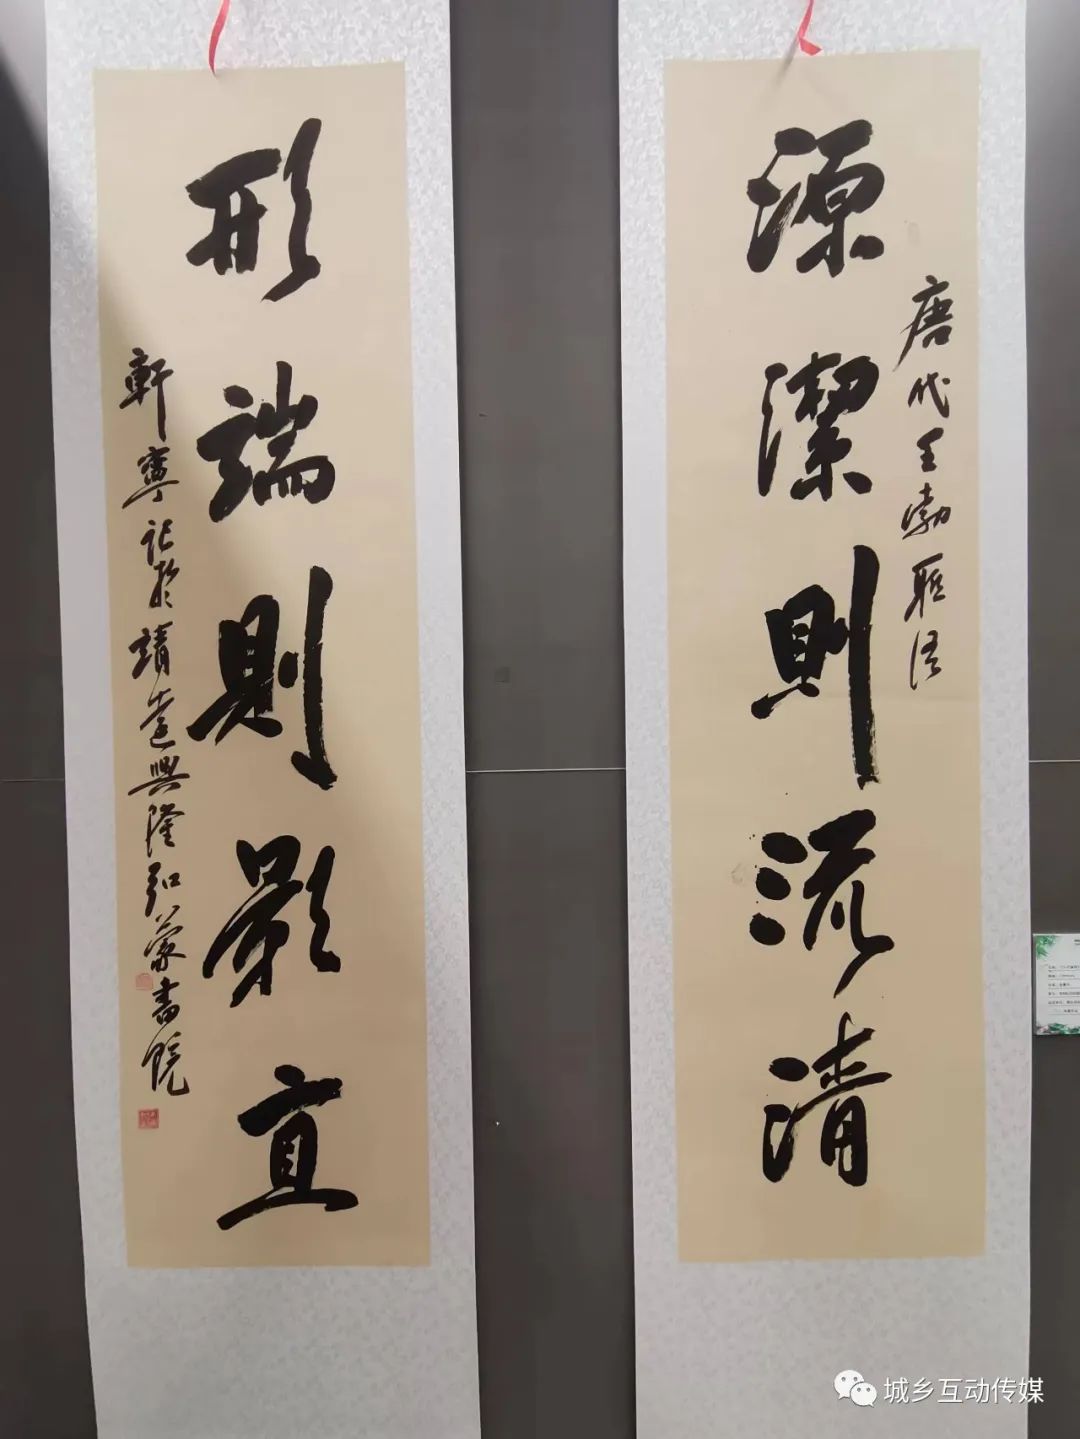 源潔則流清
唐代王勃聯語
形端則影直
軒寧記於靖遠興隆弘蒙書院
城乡互动传媒